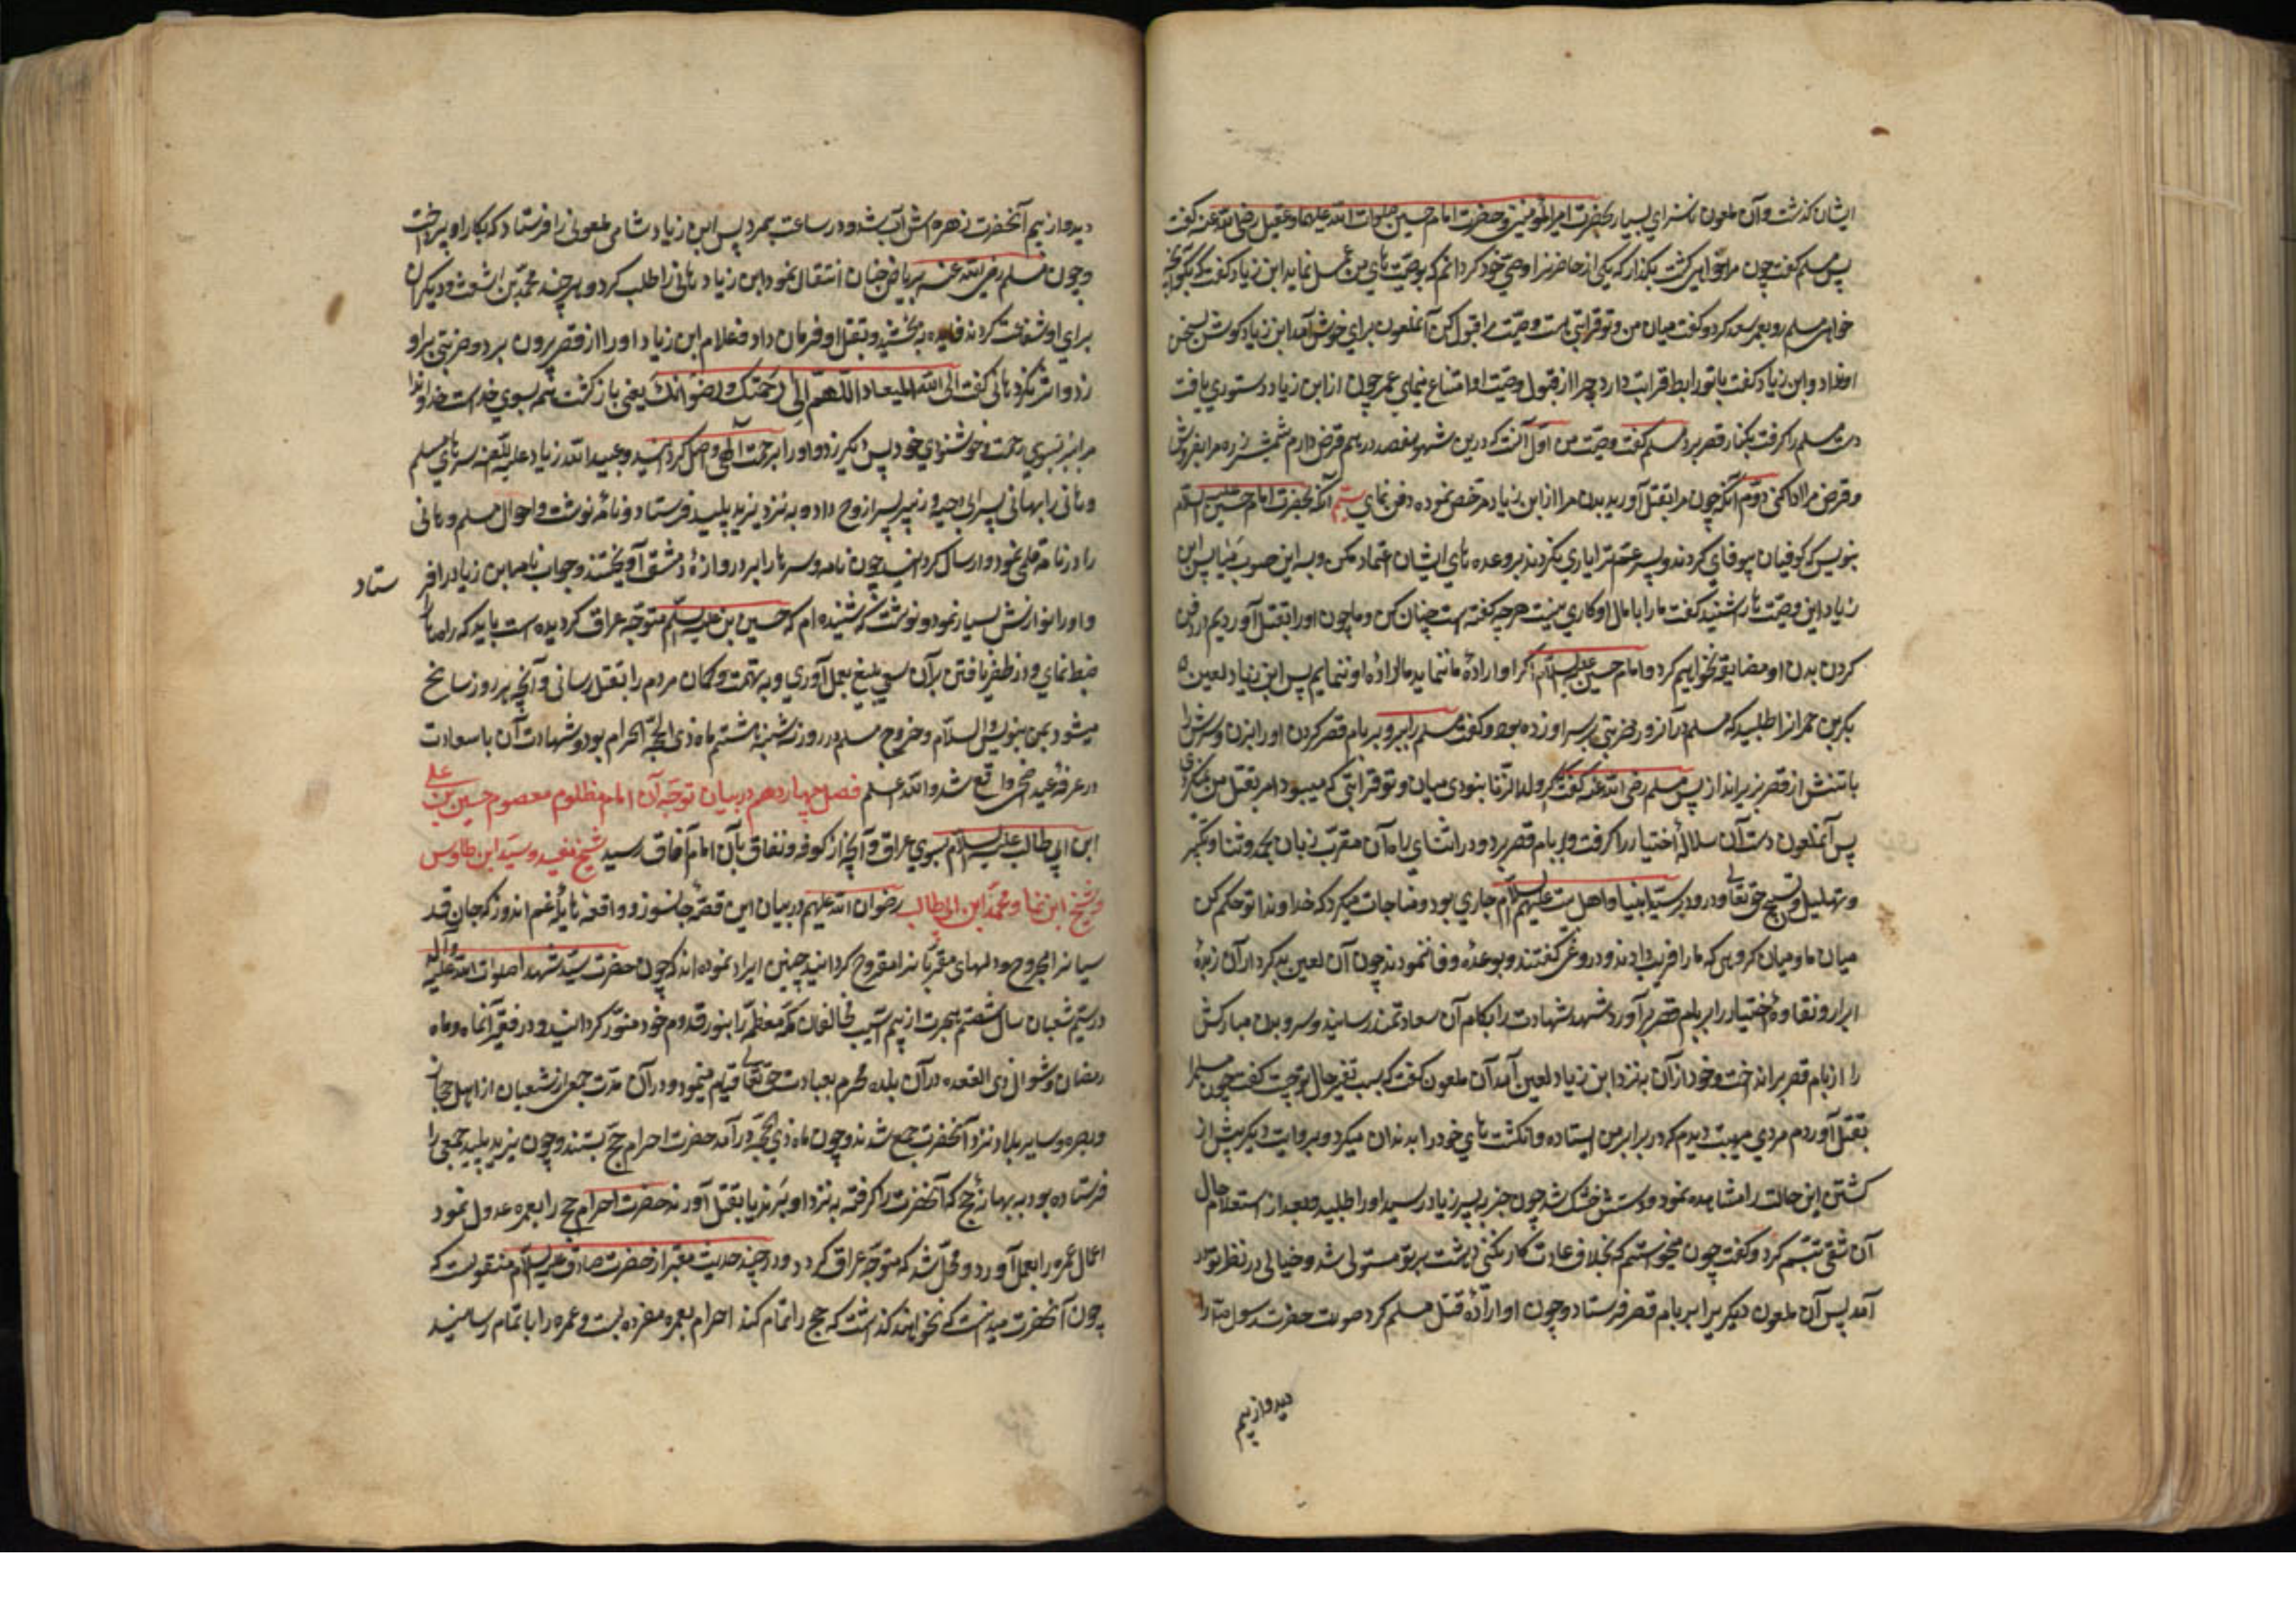 ایشان گذشت و آن ملعون ناسزای بسیار بحضرت امیرالمومنین و حضرت امام حسین صلوات الله علیهما و عقیل رضی الله عنه گفت
پس مسلم گفت چون مرا خواهی کشت بگذار که یکی از حاضرنرا وصی خود گردانم که بوصیت های من عمل نماید ابن زیاد گفت که بگو آنچه
خواهی مسلم رو بعمر سعد کرد و گفت میان من و تو قرابتی هست وصیت مرا قبول کن آنملعون برای خوش آمد ابن زیاد گوش بسخن
او نداد و ابن زیاد گفت با تو رابطه قرابت دارد چرا از قبول وصیت او امتناع مینمای عمر چون از ابن زیاد دستوری یافت
دست مسلم را گرفت بکنار قصر برد مسلم گفت وصیت من اول آنست که درین شهر هفصد درهم قرض دارم شمشیر و زره مرا بفروش
و قرض مرا ادا کنی دوم آنکه چون مرا بقتل آورید بدن مرا از ابن زیاد مرخص نموده دفن نمای سیم آنکه بحضرت امام حسین علیه السلام
بنویس که کوفیان بیوفای کردند و پسر عمت را یاری نکردند بر وعده های ایشان اعتماد مکن و به این صوب میا پس ابن
زیاد این وصیت ها را شنید گفت ما را با مال او کاری نیست هر چه گفته است چنان کن و ما چون او را بقتل آوردیم در دفن
کردن بدن او مضایقه نخواهیم کرد و امام حسین علیه السلام اگر او اراده ما ننماید ما اراده او ننمایم پس ابن زیاد لعین
بکر بن حمران را طلبید که مسلم در آنروز ضربتی بر سر او زده بود و گفت مسلم را ببر و بر بام قصر گردن او را بزن و سرش را
با تنش از قصر بزیر انداز پس مسلم رضی الله عنه گفت اگر ولد الزنا نبودی میان و تو قرابتی که میبود امر بقتل من نمیکردی
پس آنملعون دست آن سلاله اختیار را گرفت و بر بام قصر برد و در اثنای راه آن مقرب زبان بحمد و ثنا و تکبیر
و تهلیل و تسبیح حق تعالی و درود بر سید انبیا و اهل بیت علیهم السلام جاری بود و مناجات میکرد که خداوندا تو حکم کن
میان ما و میان گروهی که ما را فریب دادند و دروغ گفتند و بوعده وفا ننمودند چون آن لعین بدکردار آن زبده
ابرار و نقاوه اختیار را بر بام قصر برآورد شهد شهادت را بکام آن سعادتمند رسانید و سر و بدن مبارکش
را از بام قصر بزیر انداخت و خود از آن به نزد ابن زیاد لعین آمد آن ملعون گفت که سبب تغیر حال تو چیست گفت چون مسلم را
بقتل آوردم مردی مهیب دیدم که در برابر من ایستاده و انگشت های خود را بدندان میکرد و بروایت دیگر پیش از
کشتن این حالت را مشاهده نمود و دستش خشک شد چون خبر به پسر زیاد رسید او را طلبید و بعد از استعلام حال
آن شقی تبسم کرد و گفت چون میخواستم که بخلاف عادت کار بکنی دهشت بر تو مستولی شد و خیالی در نظر تو در
آمد پس آن ملعون دیگریرا بر بام قصر فرستاد و چون او اراده قتل مسلم کرد صورت حضرت رسول صلی را
دید و از بیم
دید و از بیم آنحضرت زهره اش آب شد و در ساعت بمرد پس ابن زیاد شامی ملعونی را فرستاد که بکار او پرداخت
و چون مسلم رضی الله عنه بریاض جنان انتقال نمود ابن زیاد هانی را طلب کرد و هر چند محمد بن اشعث و دیگران
برای او شفاعت کردند فایده نبخشید و بقتل او فرمان داد و غلام ابن زیاد او را از قصر بیرون برد و ضربتی بر او
زد و اثر نکرد هانی گفت الی الله المعاد اللهم الی رحمتک و رضوانک یعنی بازگشت همه بسوی خداست خداوندا
مرا ببر بسوی رحمت و خوشنودی خود پس دیگر زد و او را برحمت الهی واصل گردانید و عبیدالله زیاد علیه اللعنه سرهای مسلم
و هانی را بهانی پسر ابی حیه و زبیر پسر اروح داده به نزد یزید پلید فرستاد و نامه نوشت و احوال مسلم و هانی
را در نامه قلمی نمود و ارسال گردانید چون نامه و سرها را بر دروازه دمشق آویختند و جواب نامه ابن زیاد را فر ستاد
و او را نوازش بسیار نمود و نوشت که شنیده ام که حسین بن علیه السلام متوجه عراق گردیده است باید که راهها را
ضبط نمای و در ظفر یافتن بر آن سعی بلیغ بعمل آوری و به تهمت و گمان مردم را بقتل رسانی و آنچه هر روز سانح
میشود بمن بنویس والسلام و خروج مسلم در روز سه شنبه هشتم ماه ذی الحجه الحرام بود و شهادت آن باسعادت
در عرفه عید اضحی واقع شد والله اعلم فصل چهاردهم در بیان توجه آن امام مظلوم معصوم حسین بن علی
ابن ابی طالب علیه السلام بسوی عراق و آنچه از کوفه و نفاق بآن امام آفاق رسید شیخ مفید و سید ابن طاوس
و شیخ ابن نما و محمد ابن ابی طالب رضوان الله علیهم در بیان این قصه جانسوز و واقعه هایله غم اندوز که جان قد
سیانرا مجروح و دلهای مقربانرا مقروح گردانید چنین ایراد نموده اند که چون حضرت سید شهدا صلوات الله علیه و آله
در سیم شعبان سال شصتم هجرت از بیم آسیب مخالفان مکه معظمه را بنور قدوم خود منور گردانید و در بقیه آنماه و ماه
رمضان و شوال ذی القعده در آن بلده محرم بعبادت حق تعالی قیام مینمود و در آن مدت جمعی از شیعیان از اهل حجاز
و بصره و سایر بلاد نزد آنحضرت جمع شدند و چون ماه ذی حجه در آمد حضرت احرام حج بستند و چون یزید پلید جمعی را
فرستاده بود به بهانه حج که آنحضرت را گرفته به نزد او برند یا بقتل آورند حضرت احرام حج را بعمره عدول نمود
اعمال عمره را بعمل آورد و محل شد که متوجه عراق گردد و در چند حدیث معتبر از حضرت صادق علیه السلام منقولست که
چون آنحضرت میدانست که نخواهند گذاشت که حج را تمام کند احرام بعمره مفرده بست و عمره را باتمام رسانید